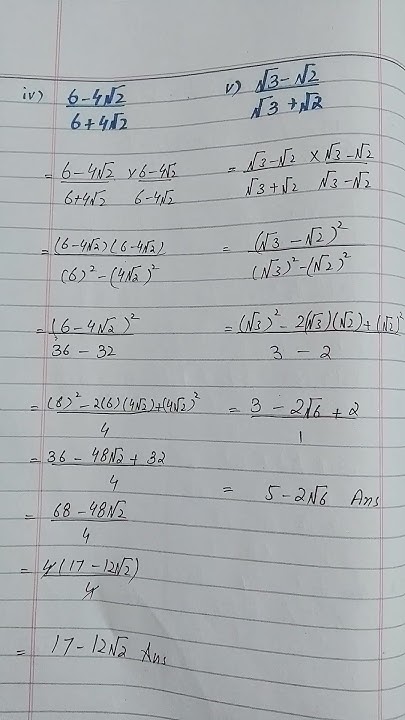 iv) 6-4√2 / 6+4√2
= 6-4√2 / 6+4√2 × 6-4√2 / 6-4√2
= (6-4√2)(6-4√2) / (6)² - (4√2)²
= (6-4√2)² / 36 - 32
= (6)² - 2(6)(4√2)+(4√2)² / 4
= 36 - 48√2 + 32 / 4
= 68 - 48√2 / 4
= 4(17-12√2) / 4
= 17-12√2 Ans
v) √3-√2 / √3+√2
= √3-√2 / √3+√2 × √3-√2 / √3-√2
= (√3-√2)² / (√3)²-(√2)²
= (√3)² - 2(√3)(√2)+(√2)² / 3 - 2
= 3 - 2√6 + 2 / 1
= 5-2√6 Ans